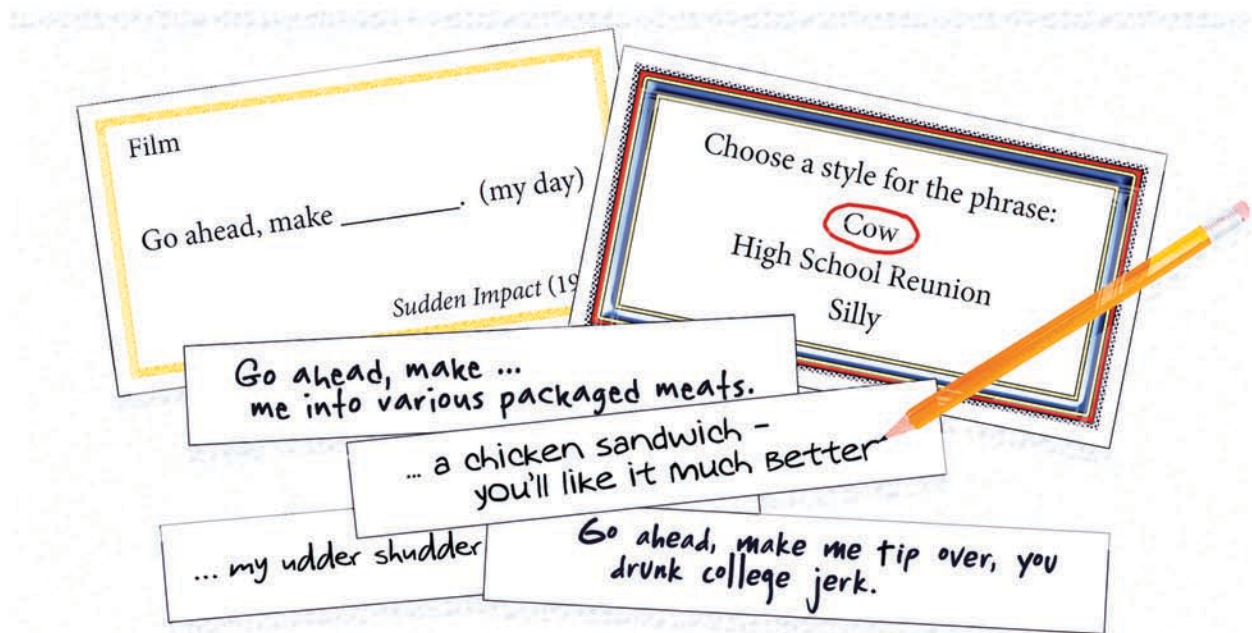 Film
Go ahead, make ________. (my day)
Sudden Impact (19
Choose a style for the phrase:
Cow
High School Reunion
Silly
Go ahead, make ...
me into various packaged meats.
... a chicken sandwich –
you'll like it much better
... my udder shudder
Go ahead, make me tip over, you
drunk college jerk.